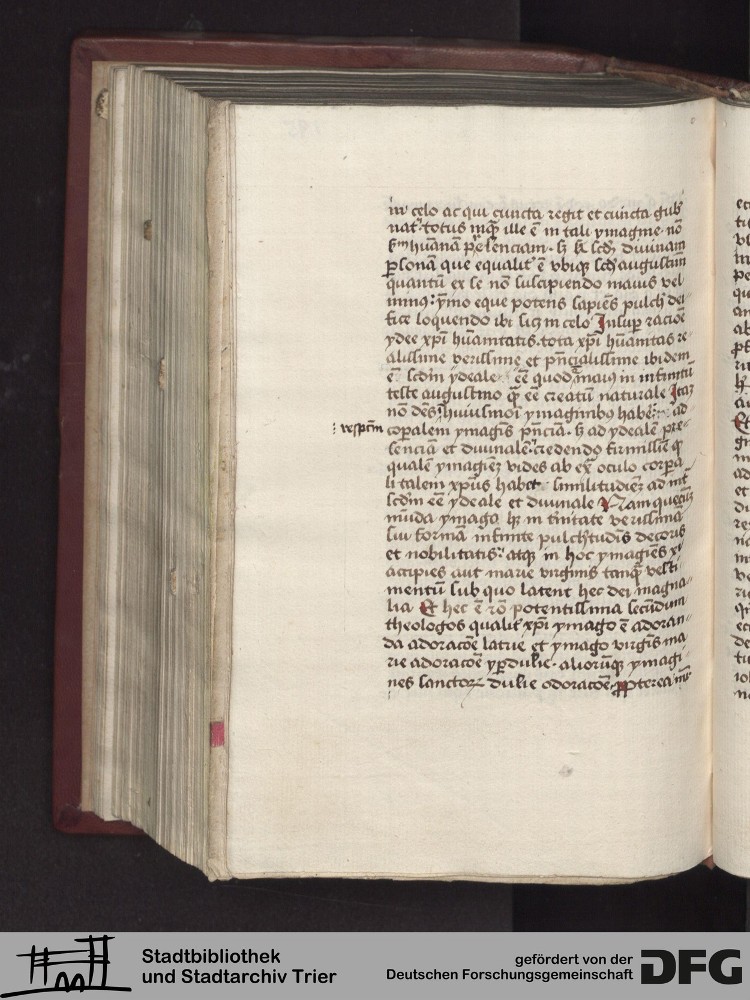 in celo ac qui cuncta regit et cuncta gub
nat totus inq̄ ille ē in tali ymagine nō
hūanā pn̄tenciam divinam
ꝑsonā que equalit ē vbiqꝫ scdꝫ augustinū
quantū ex se nō suscipiendo maius vel
minꝰ ymo eque potens sapiēs pulcħ dei
fice loquendo ibi sicꝫ in celo Insuꝑ racōe
ydee xp̄i hūanitatis tota xp̄i hūanitas re
alissime verissime et pn̄cialissime ibidem
ē scdm ydeale eē quod maiꝰ in infinitū
teste augustino q̄ eē creatū naturale Itaqꝫ
nō dēs huiusmōi ymaginibꝰ habē ad
respectū
coꝑalem ymagīs pn̄ciā ad ydealē pre
senciā et divinalē credendo firmissīe q̄
qualē ymaginē vides ab ex̄ oculo corpa
li talem xp̄us habet similitudinē ad
scdm eē ydeale et divinale Nam quecūqꝫ
mūda ymago hꝫ in t̄nitate verissimā
suī formā infinite pulchͬtudīs decoris
et nobilitatis atqꝫ in hoc ymaginē xp̄i
accipies aut marie virginis tanq̄ vesti
mentū sub quo latent hec dei magna
lia Et hec ē rō potentissima secūdum
theologos qualit xp̄i ymago ē adoran
da adoracōe latrie et ymago virgīs ma
rie adoracōe yꝑdulie aliorūqꝫ ymagi
nes sanctoꝝ dulie adoracōe Ꝓpterea
Stadtbibliothek
und Stadtarchiv Trier
gefördert von der
Deutschen Forschungsgemeinschaft
DFG